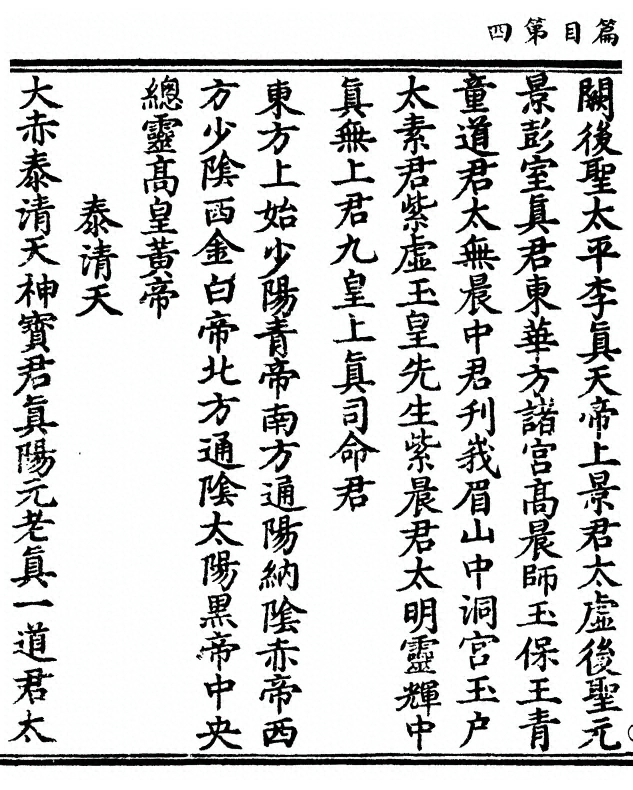 篇目第四
闕後聖太平李眞天帝上景君太虛後聖元
景彭室眞君東華方諸宮高晨師玉保王青
童道君太無晨中君刋峩眉山中洞宮玉户
太素君紫虛玉皇先生紫晨君太明靈輝中
眞無上君九皇上眞司命君
東方上始少陽青帝南方通陽納陰赤帝西
方少陰西金白帝北方通陰太陽黑帝中央
總靈高皇黃帝
泰清天
大赤泰清天神寶君眞陽元老眞一道君太